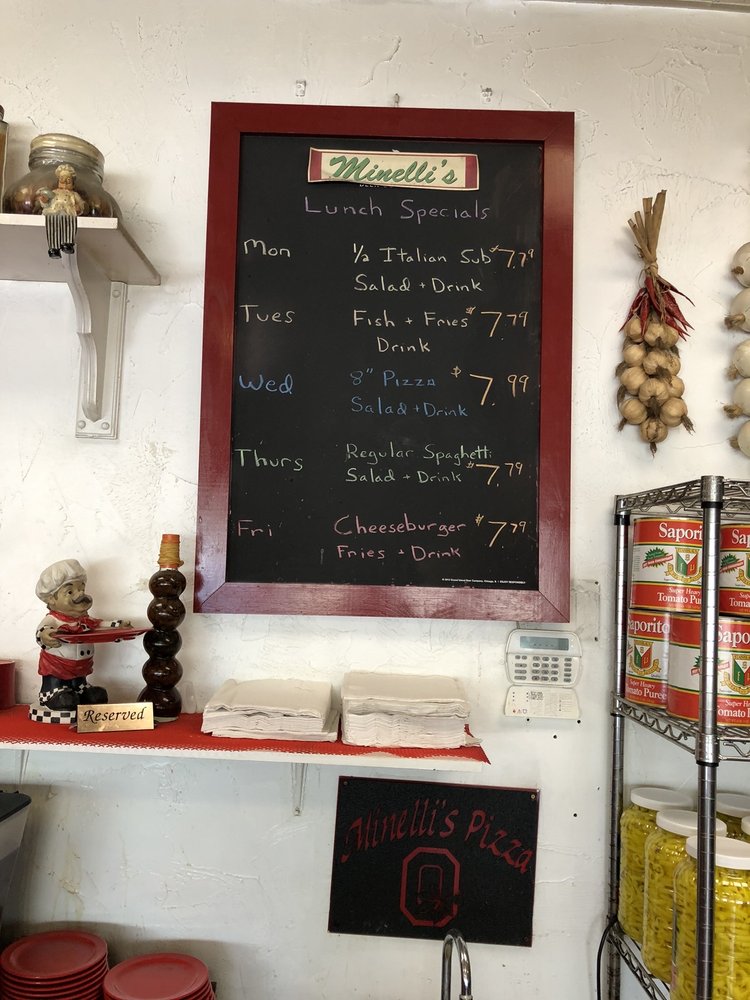 Minelli's
Lunch Specials
Mon ½ Italian Sub $7.79
Salad + Drink
Tues Fish + Fries $7.79
Drink
Wed 8" Pizza $7.99
Salad + Drink
Thurs Regular Spaghetti
Salad + Drink $7.79
Fri Cheeseburger $7.79
Fries + Drink
Reserved
Minelli's Pizza
O
Saporito
Super Heavy
Tomato Puree
Saporito
Super Heavy
Tomato Puree